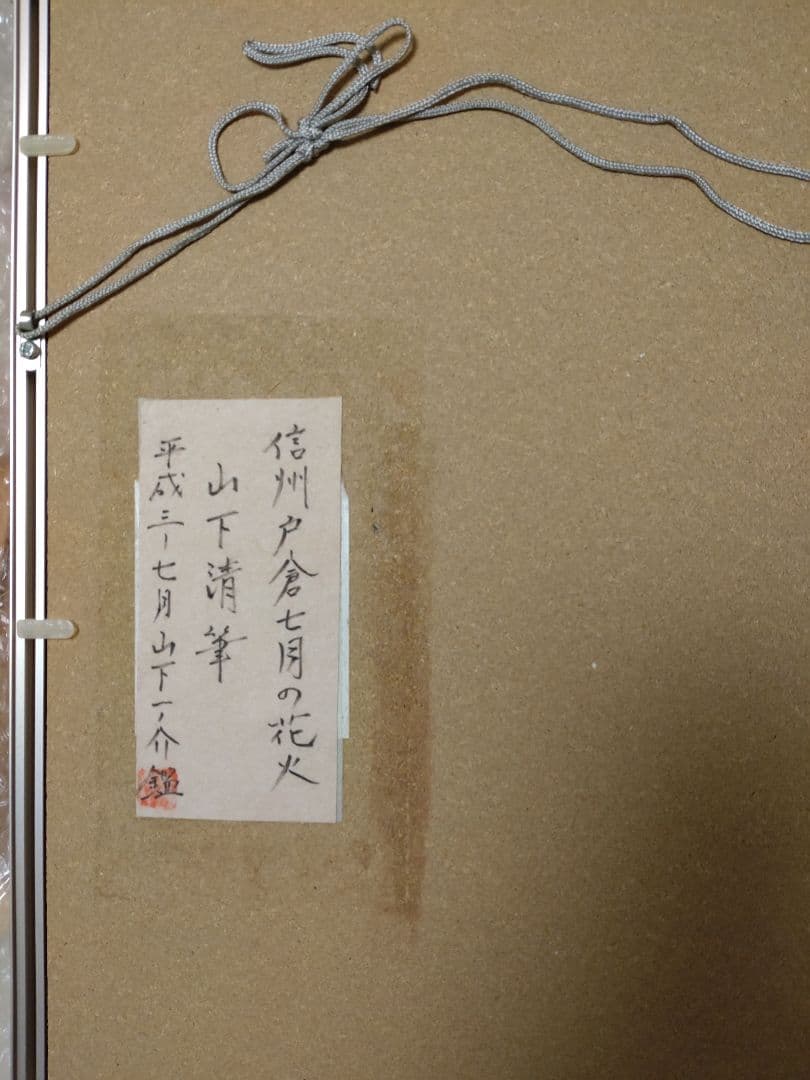 信州戸倉七月の花火
山下清筆
平成三一七月山下一ノ介鑑